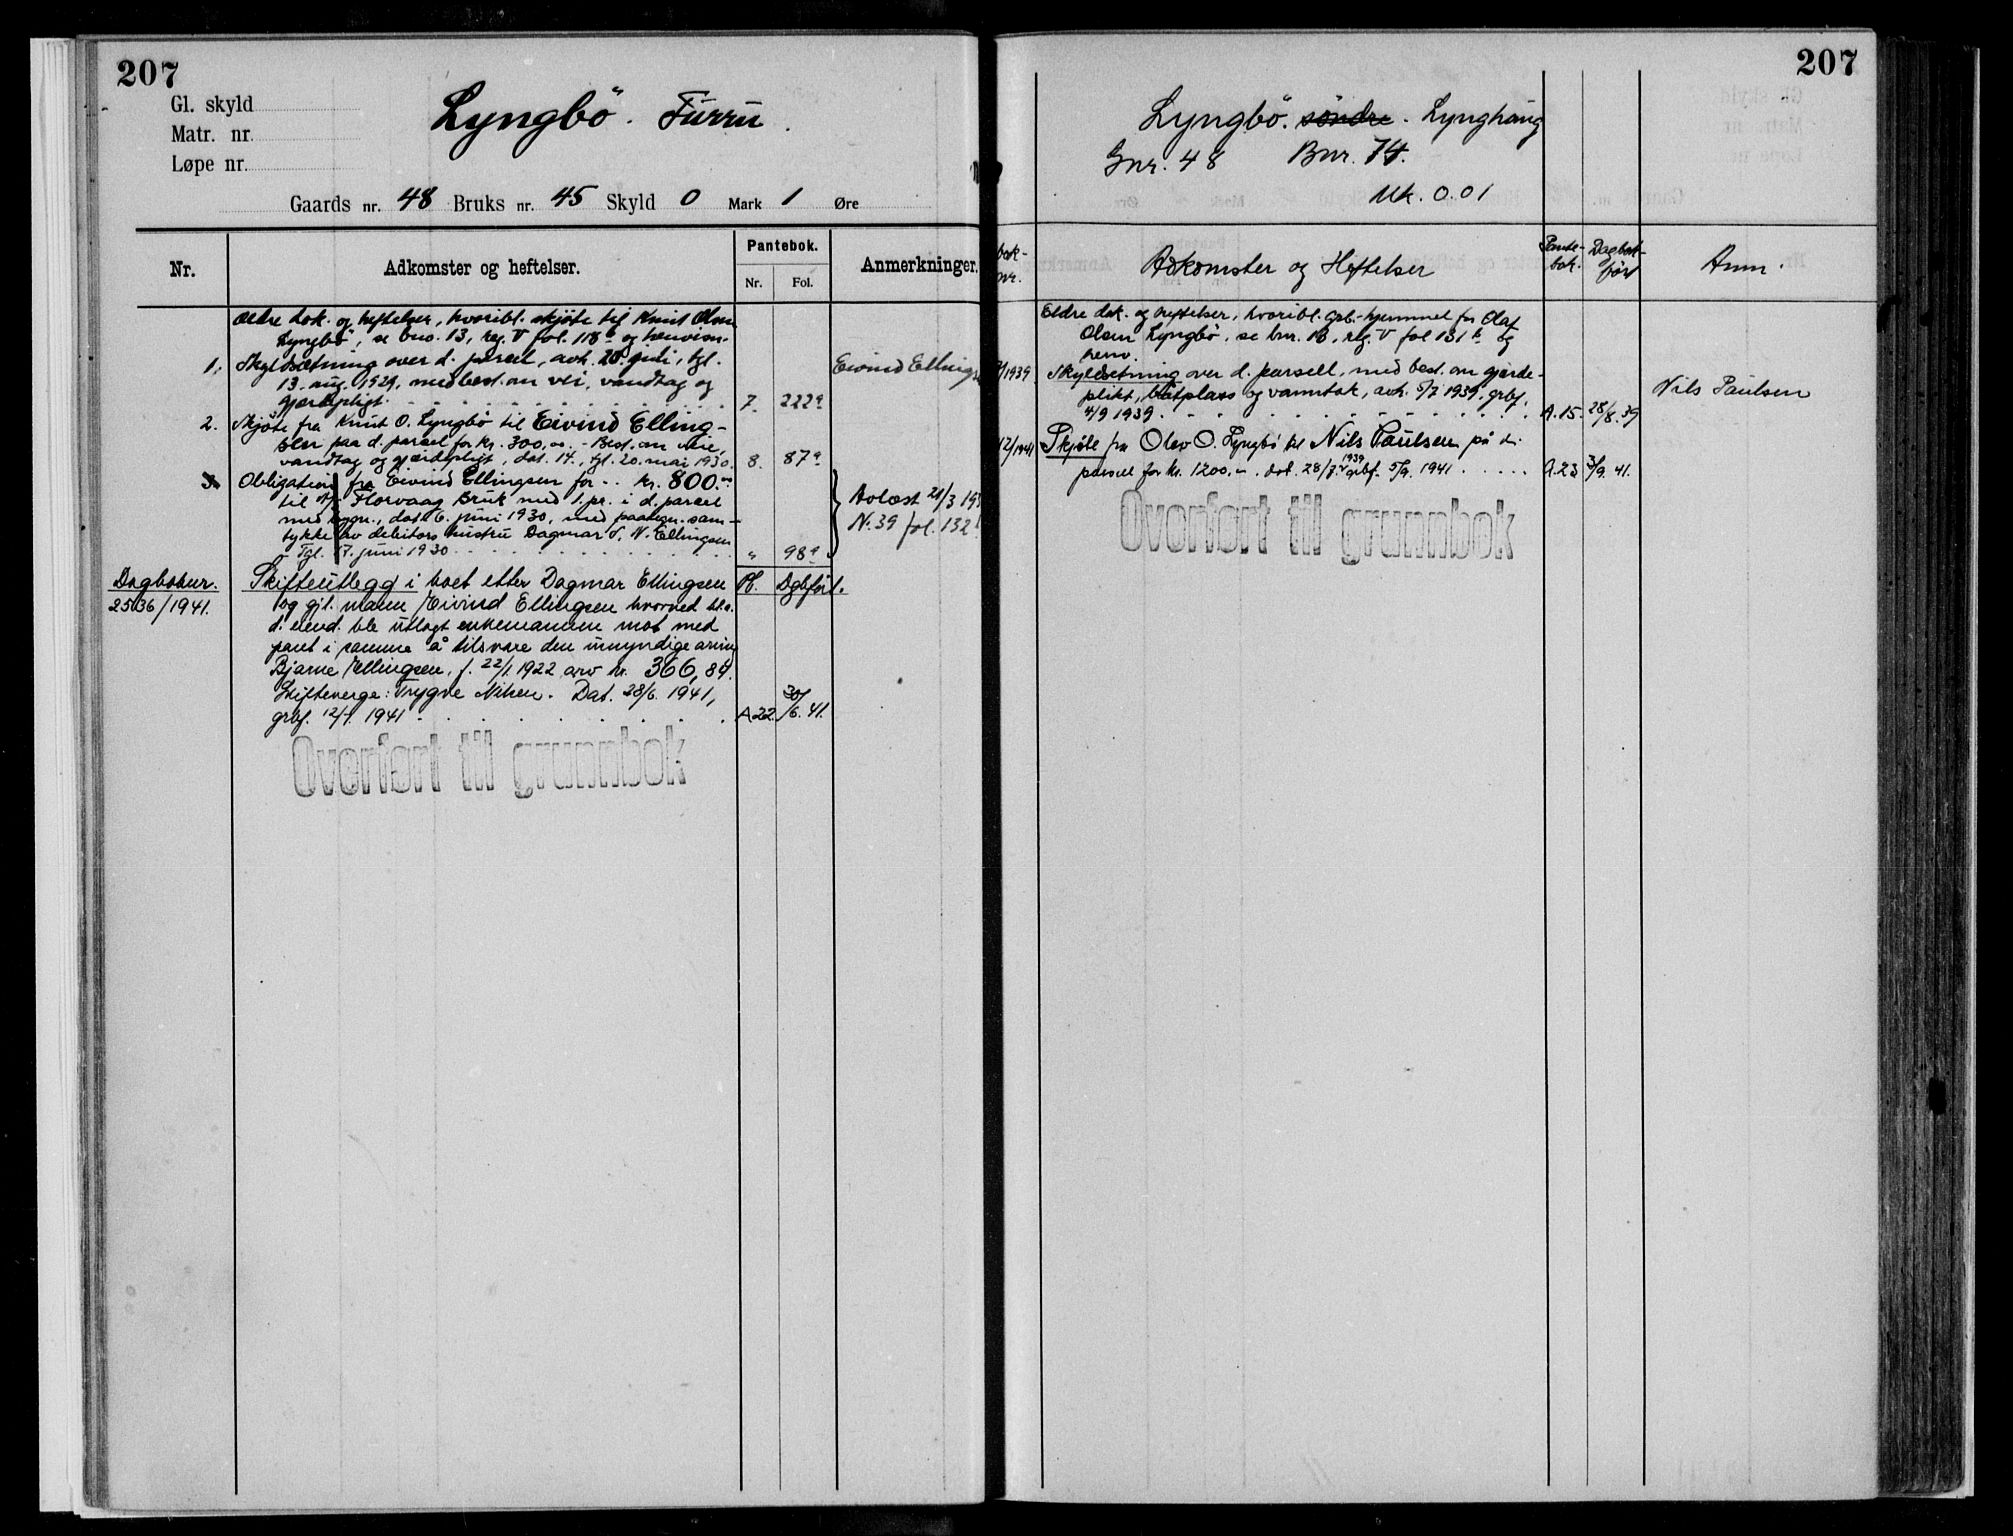 207
Gl. skyld
Matr. nr.
Løpe nr.
Lyngbö. Furru.
Gaards nr. 48 Bruks nr. 45 Skyld 0 Mark 1 Øre
Nr.
Adkomster og heftelser.
Pantebok.
Nr. Fol.
Anmerkninger.
Ældre dok. og heftelser, hvoribl. skjöte til Knut Olsen
Lyngbö, se bno. 13, reg. V fol. 118b og henvisn.
1. Skyldsætning over d. parcel, avh. 20. juli, tgl.
13. aug. 1929, med best. om vei, vandtag og
gjærdepligt. 7. 222a
Eivind Ellings
2. Skjöte fra Knut O. Lyngbö til Eivind Elling-
sen paa d. parcel for kr. 300,00. - Best. om vei,
vandtag og gjærdepligt, dat. 14., tgl. 20. mai 1930. 8. 87a
3. Obligation fra Eivind Ellingsen for kr. 800.00
til A/S Florvaag Bruk med 1. pr. i d. parcel
med bygn., dat. 6. juni 1930, med paategn. sam-
tykke av debitors hustru Dagmar N. Ellingsen
Tgl. 17. juni 1930 " 98a
Avlæst 21/3 193
N. 39 fol. 132
Dagboknr.
2536/1941.
Skifteutlegg i boet etter Dagmar Ellingsen
Pb. Dgbført.
og gjl. mann Eivind Ellingsen hvorved bl.a.
d. eiend. ble utlagt enkemannen mot med
pant i samme å tilsvare den umyndige arving
Bjarne Ellingsen, f. 22/1 1922 arv kr. 366,84.
Skifteverge: Trygve Nilsen. Dat. 28/6. 1941,
grbf. 12/7. 1941 A 22. 30/6. 41.
Overført til grunnbok
207
Lyngbö. söndre. Lynghaug
Gnr. 48 Bnr. 74.
Mk. 0.01
bok-
nr.
Adkomster og Heftelser
Pante-
bok.
Dagbok-
ført
Anm.
Eldre dok. og heftelser, hvoribl. grb.-hjemmel for Olaf
Olsen Lyngbö, se bnr. 16, reg. V fol 131b og
henv.
/1939 Skyldsetning over d. parsell, med best. om gjærde-
plikt, båtplass og vanntak, avh. 5/7 1939. grbf.
4/9 1939 A. 15 28/8. 39
Nils Paulsen
12/1941 Skjöte fra Olav O. Lyngbö til Nils Paulsen på d.
parsel for kr. 1200.-. dat. 28/7. 1939 grbf. 5/9. 1941 A. 23 3/9. 41.
Overført til grunnbok